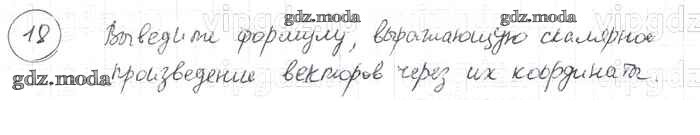 18 Выведите формулу, выражающую скалярное
произведение векторов через их координаты.
gdz.moda
gdz.moda
gdz.moda
gdz.moda